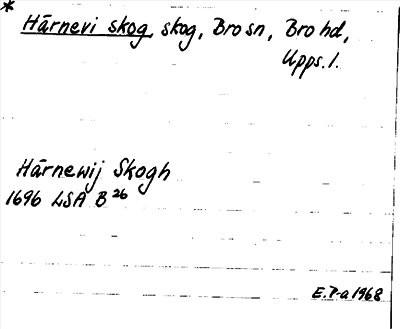 *
Härnevi skog, skog, Bro sn, Bro hd,
Upps. l.
Härnewij Skogh
1696 LSA B 26
E.P-a 1968